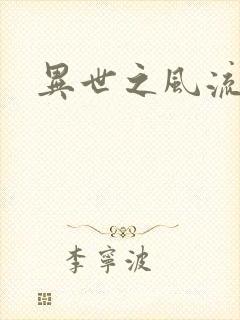 異世之風流
李寧波